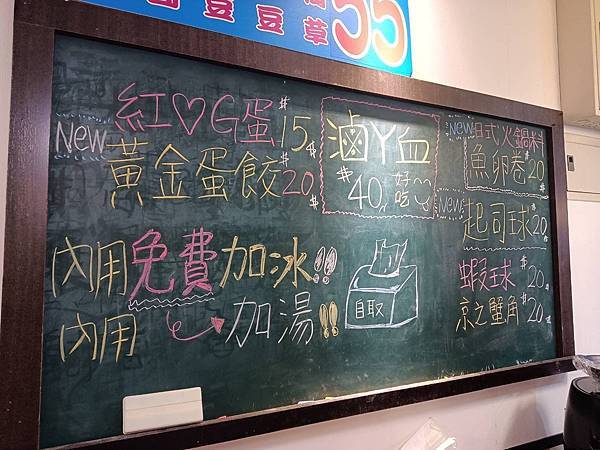 豆豆草 55
New 紅♡G蛋 $15
黃金蛋餃 $20
滷ㄚ血
$40 好吃
New 日式火鍋料
魚卵卷 $20
New 起司球 20
蝦球 $20
京之蟹角 $20
內用免費加冰!!
內用 加湯!!
自取